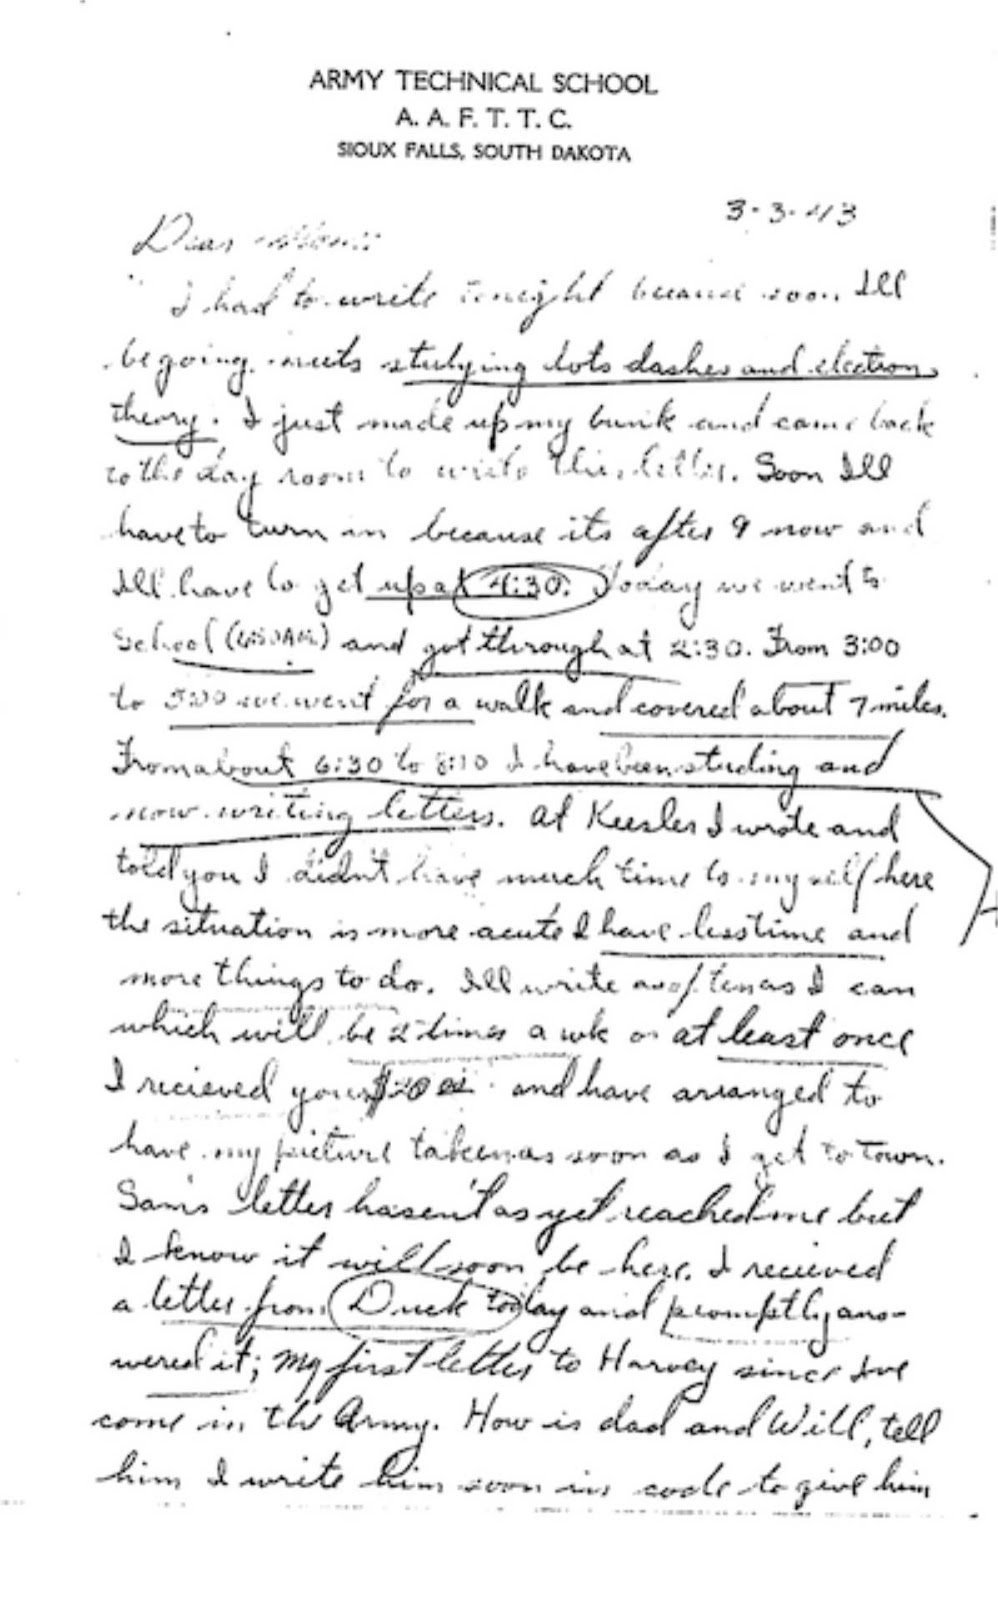 ARMY TECHNICAL SCHOOL
A. A. F. T. T. C.
SIOUX FALLS, SOUTH DAKOTA
3-3-43
Dear Mom:
I had to write tonight because soon Ill
be going nuts studying dots dashes and electron
theory. I just made up my bunk and came back
to the day room to write this letter. Soon Ill
have to turn in because its after 9 now and
Ill have to get up at 4:30. Today we went to
School and got through at 2:30. From 3:00
to 5:00 we went for a walk and covered about 7 miles.
From about 6:30 to 8:10 I have been studing and
now writing letters. At Keesler I wrote and
told you I didn't have much time to myself here
the situation is more acute I have less time and
more things to do. Ill write as often as I can
which will be 2 times a wk or at least once
I recieved your $20 00 and have arranged to
have my picture taken as soon as I get to town.
Sam's letter hasen't as yet reached me but
I know it will soon be here. I recieved
a letter from Duck today and promptly ans-
wered it; my first letter to Harvey since Ive
come in the Army. How is dad and Will, tell
him I write him soon in code to give him